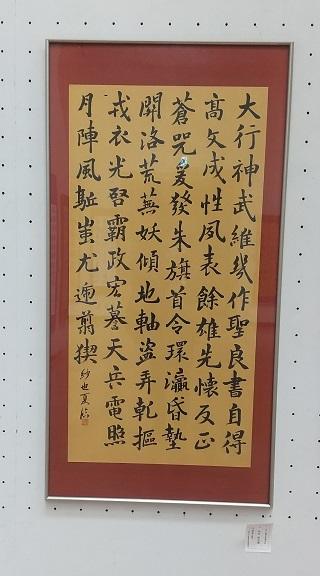 大行神武維幾作聖良書自得
髙文成性夙表餘雄先懷反正
蒼兕爰發朱旗首令環瀛昏墊
關洛荒蕪妖傾地軸盜弄乾樞
戎衣光啓霸政宏謩天兵電照
月陣風駈蚩尤遄翦猰
紗也夏臨